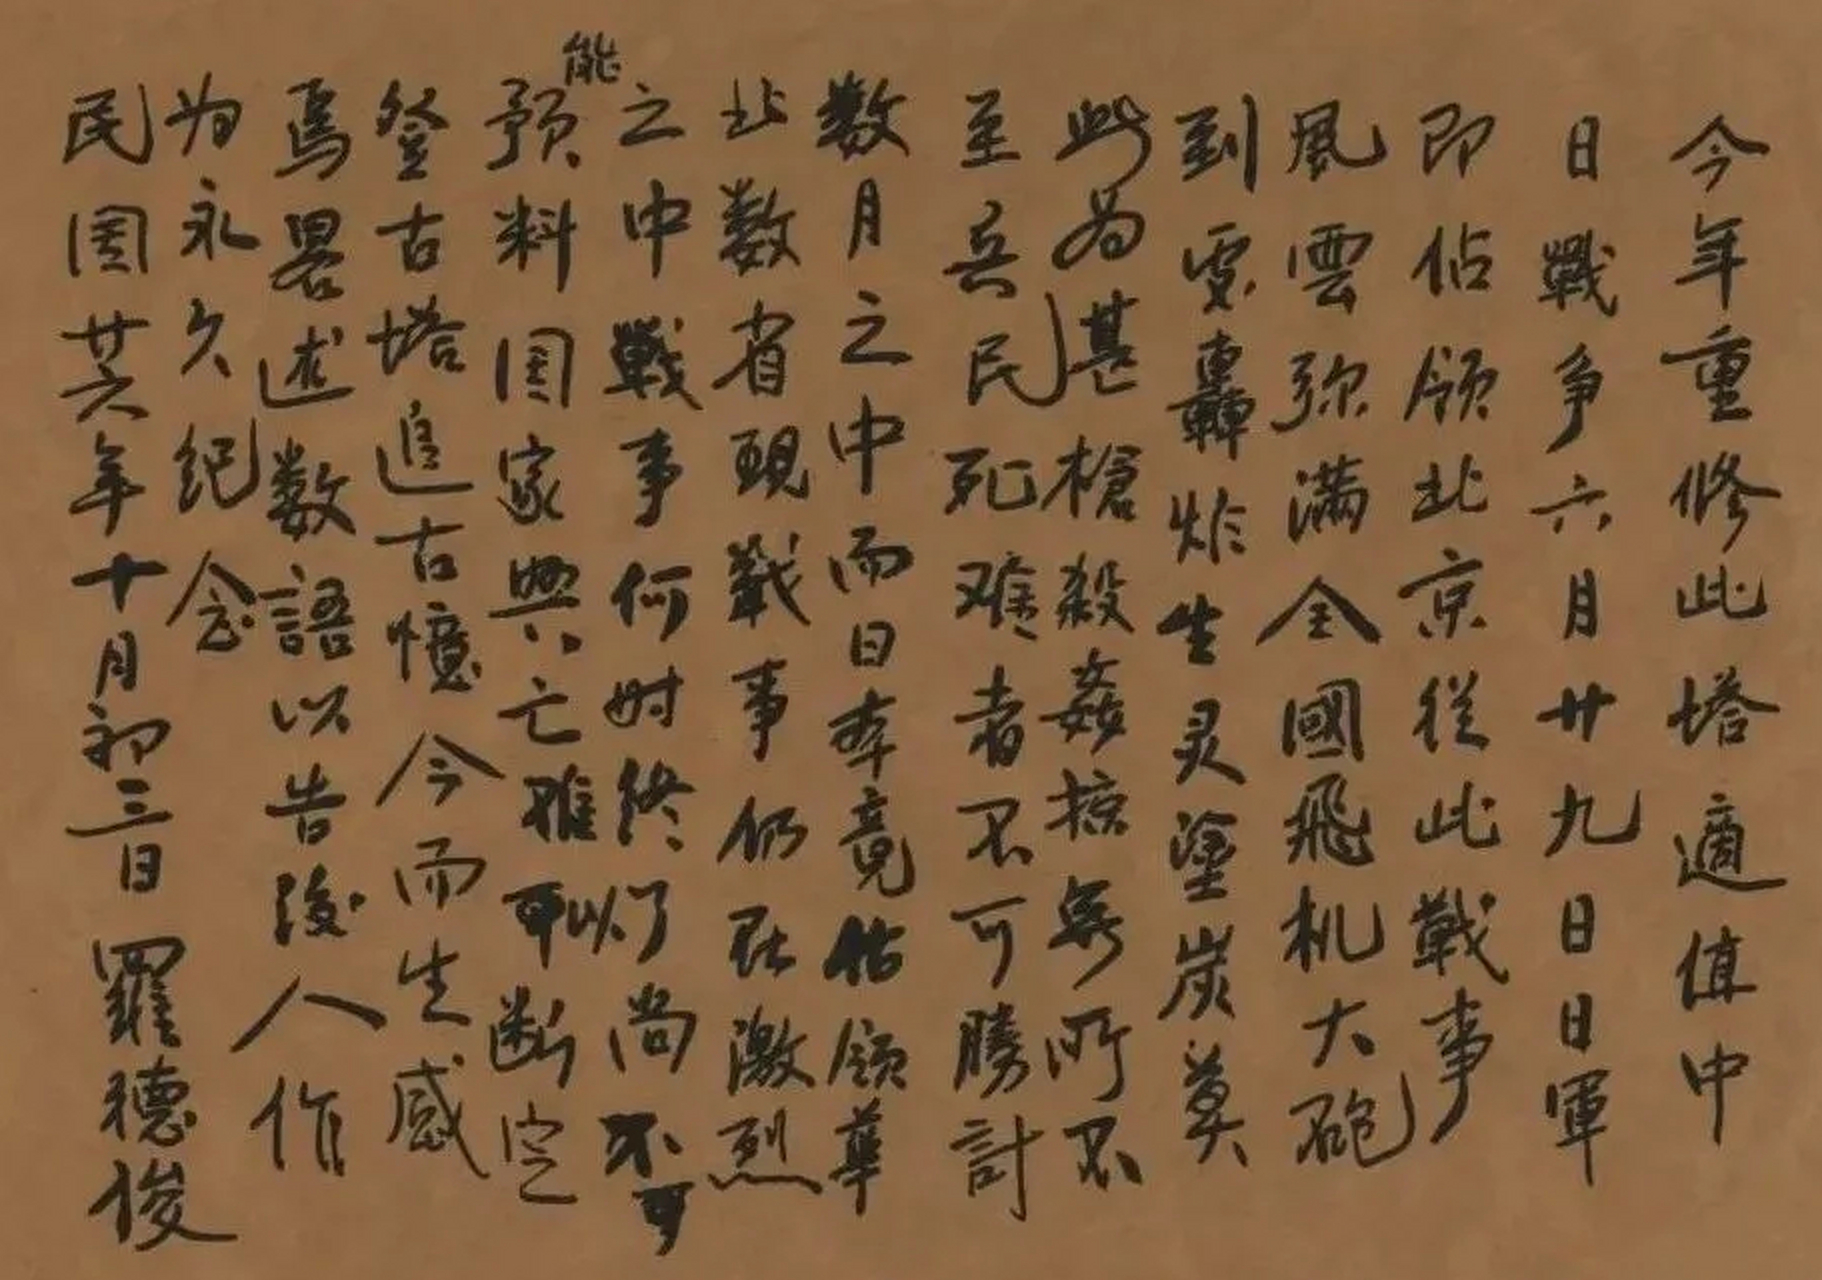 今年重修此塔適值中
日戰争六月廿九日日軍
即佔领北京從此戰事
風雲弥满全國飛机大砲
到處轟炸生灵塗炭莫
此为甚槍殺姦掠無所不
至兵民死难者不可勝計
数月之中而日本竟佔领華
北数省現戰事仍在激烈
之中戰事何时终了尚不可
能
预料国家興亡谁可以断定
登古塔追古憶今而生感
焉畧述数語以告後人作
为永久纪念
民国廿六年十月初三日羅德俊